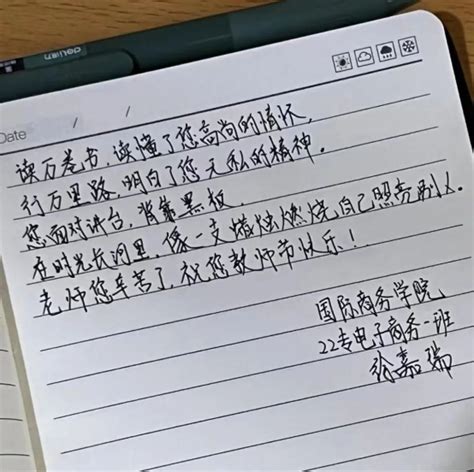 deli
Date / /
读万卷书,读懂了您高尚的情怀,
行万里路,明白了您无私的精神。
您面对讲台,背靠黑板,
在时光长河里,像一支蜡烛燃烧自己照亮别人。
老师您辛苦了,祝您教师节快乐!
国际商务学院
22专电子商务一班
徐嘉瑞